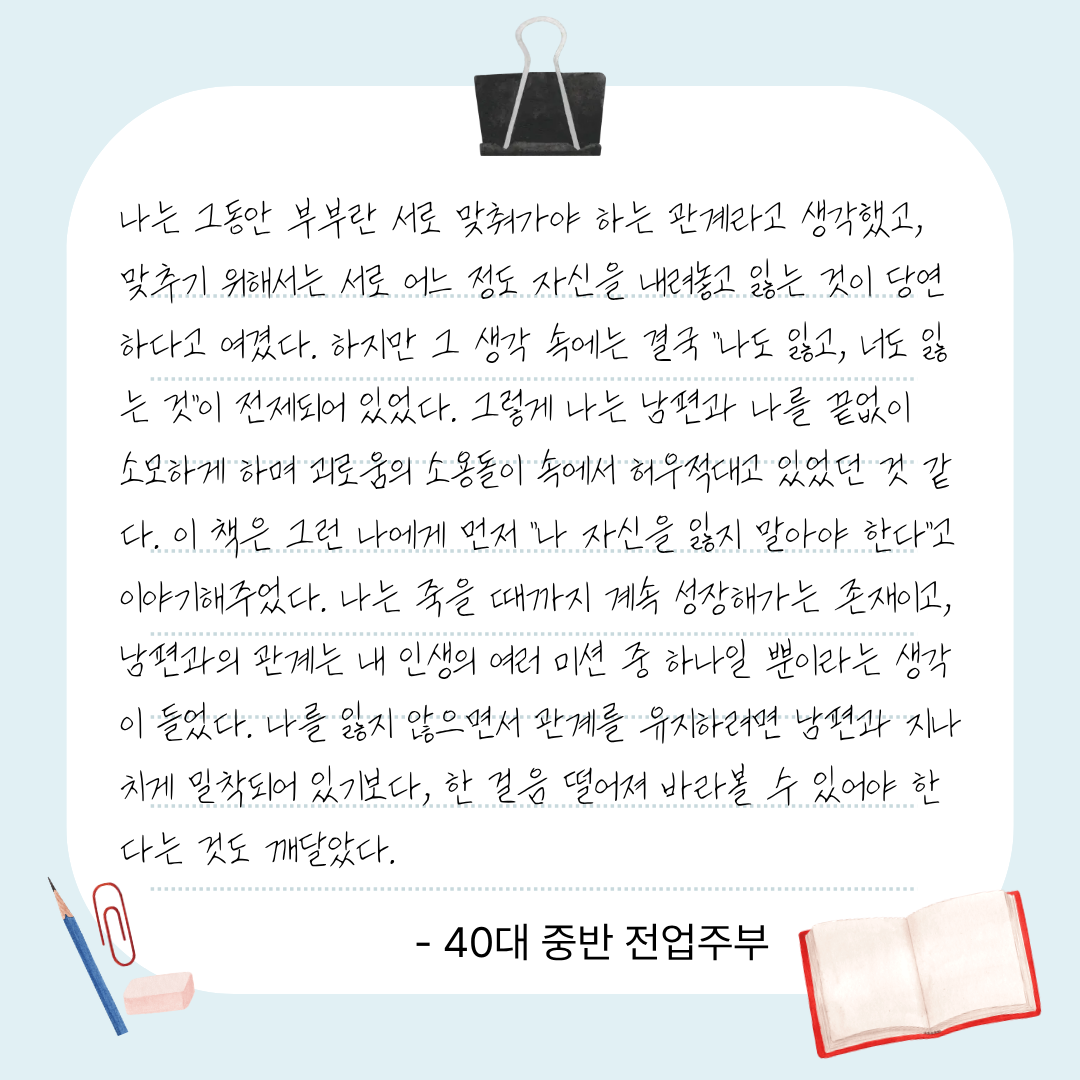 나는 그동안 부부란 서로 맞춰가야 하는 관계라고 생각했고,
맞추기 위해서는 서로 어느 정도 자신을 내려놓고 잃는 것이 당연
하다고 여겼다. 하지만 그 생각 속에는 결국 "나도 잃고, 너도 잃
는 것"이 전제되어 있었다. 그렇게 나는 남편과 나를 끝없이
소모하게 하며 괴로움의 소용돌이 속에서 허우적대고 있었던 것 같
다. 이 책은 그런 나에게 먼저 "나 자신을 잃지 말아야 한다"고
이야기해주었다. 나는 죽을 때까지 계속 성장해가는 존재이고,
남편과의 관계는 내 인생의 여러 미션 중 하나일 뿐이라는 생각
이 들었다. 나를 잃지 않으면서 관계를 유지하려면 남편과 지나
치게 밀착되어 있기보다, 한 걸음 떨어져 바라볼 수 있어야 한
다는 것도 깨달았다.
- 40대 중반 전업주부